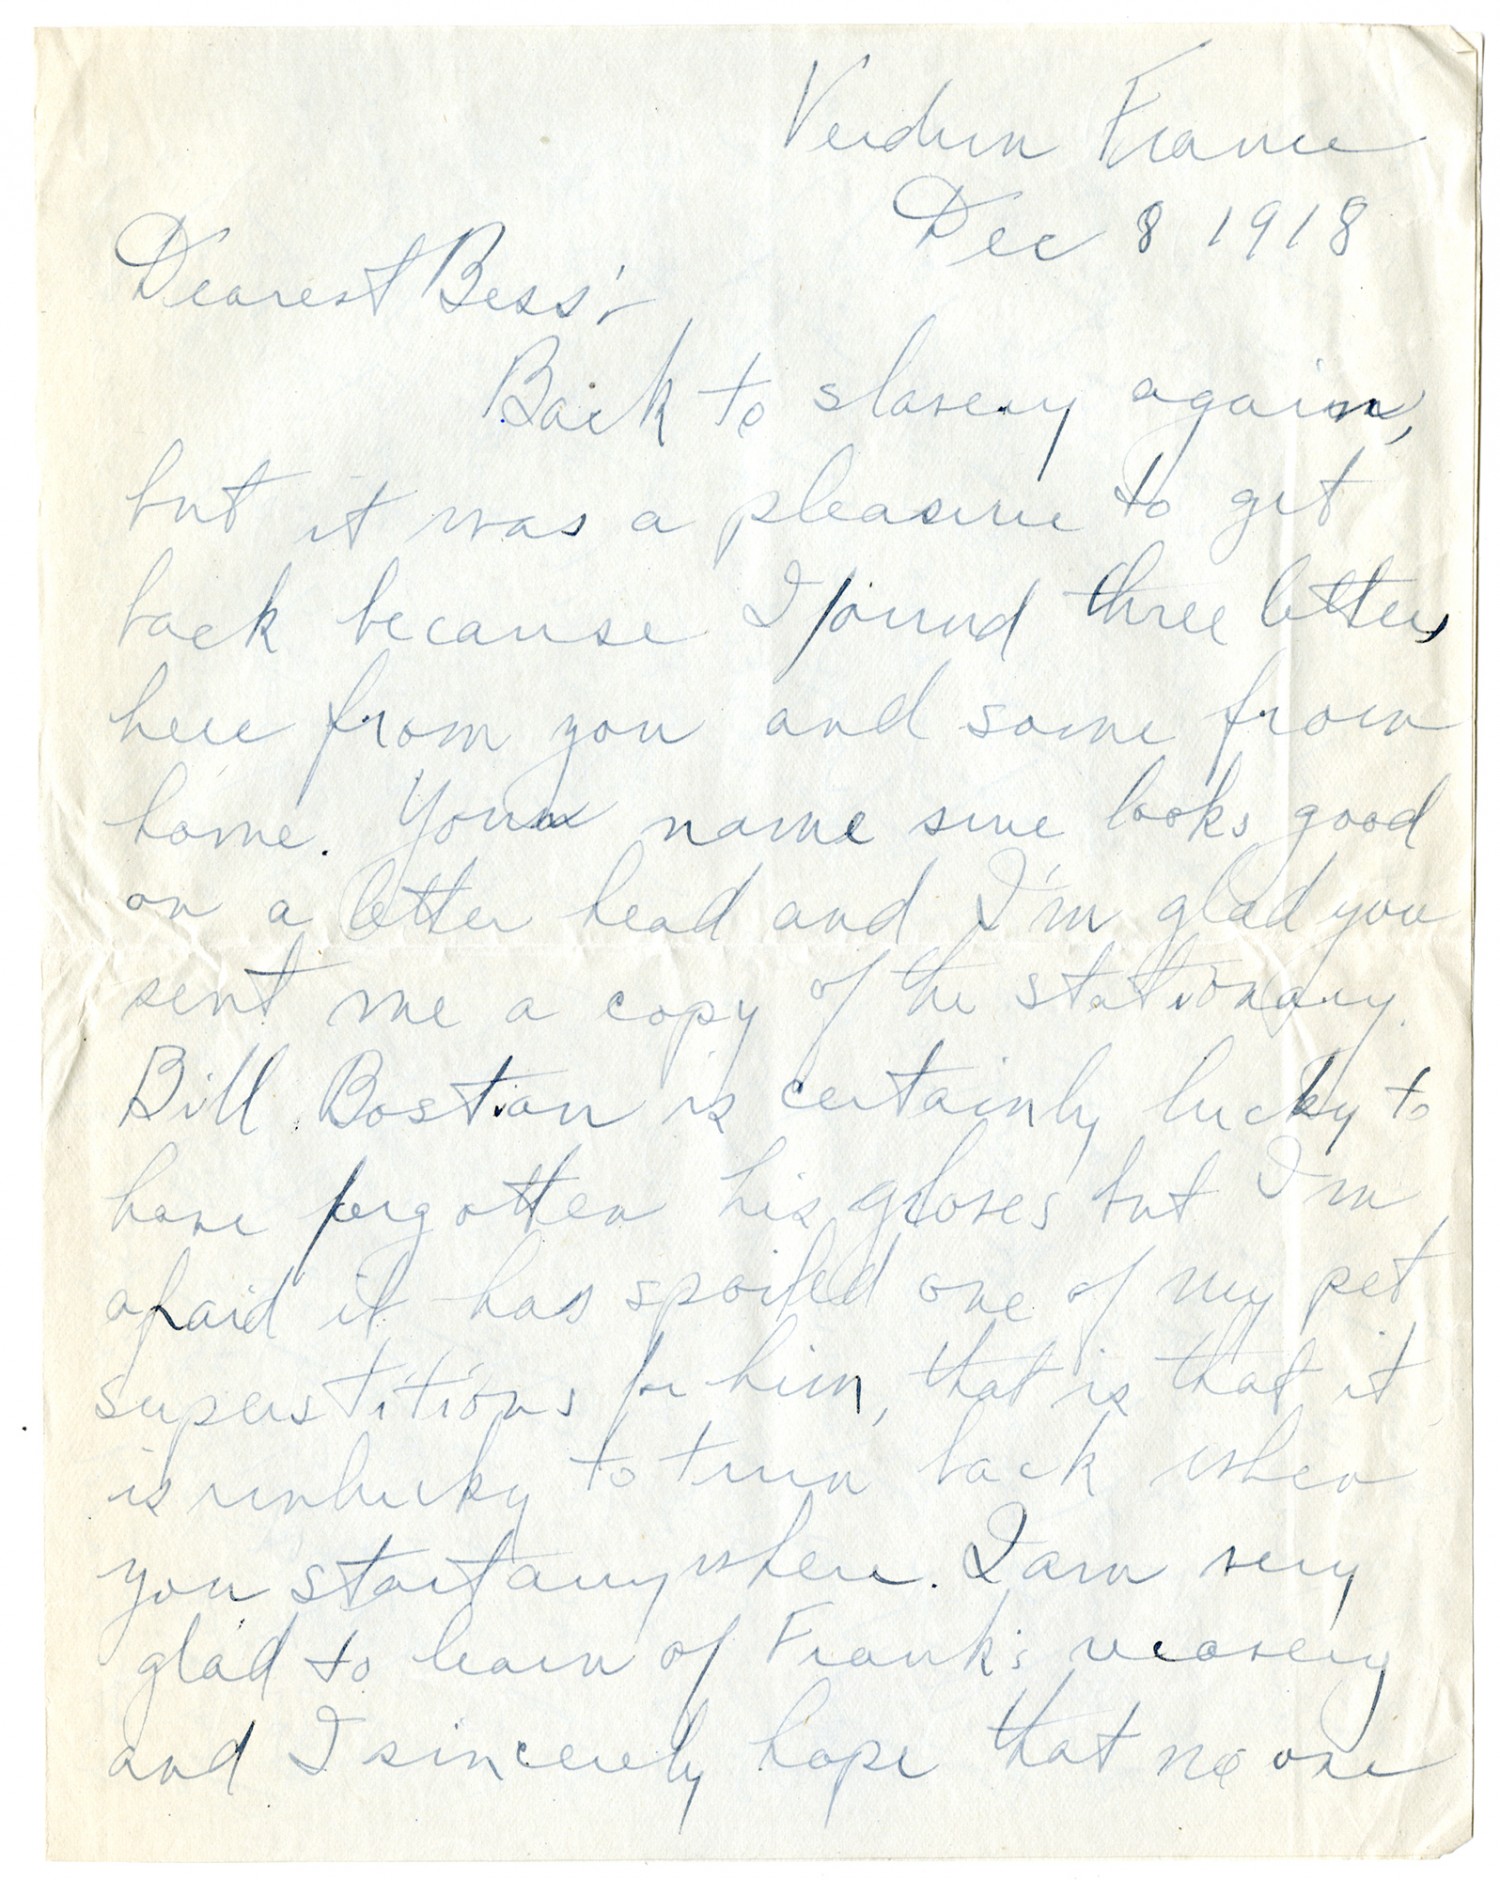 Verdun France
Dec 8 1918
Dearest Bess:-
Back to slavery again,
but it was a pleasure to get
back because I found three letters
here from you and some from
home. Your name sure looks good
on a letter head and I'm glad you
sent me a copy of the stationary.
Bill Bostian is certainly lucky to
have forgotten his gloves but I'm
afraid it has spoiled one of my pet
superstitions for him, that is that it
is unlucky to turn back when
you start anywhere. I am very
glad to learn of Frank's recovery
and I sincerely hope that no one